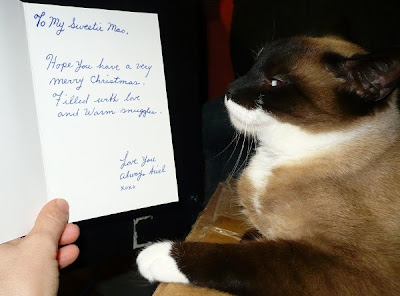 To My Sweetie Mao,
Hope You have a very
merry Christmas.
Filled with love
and Warm snuggles.
Love You
Always Ariel
xoxo